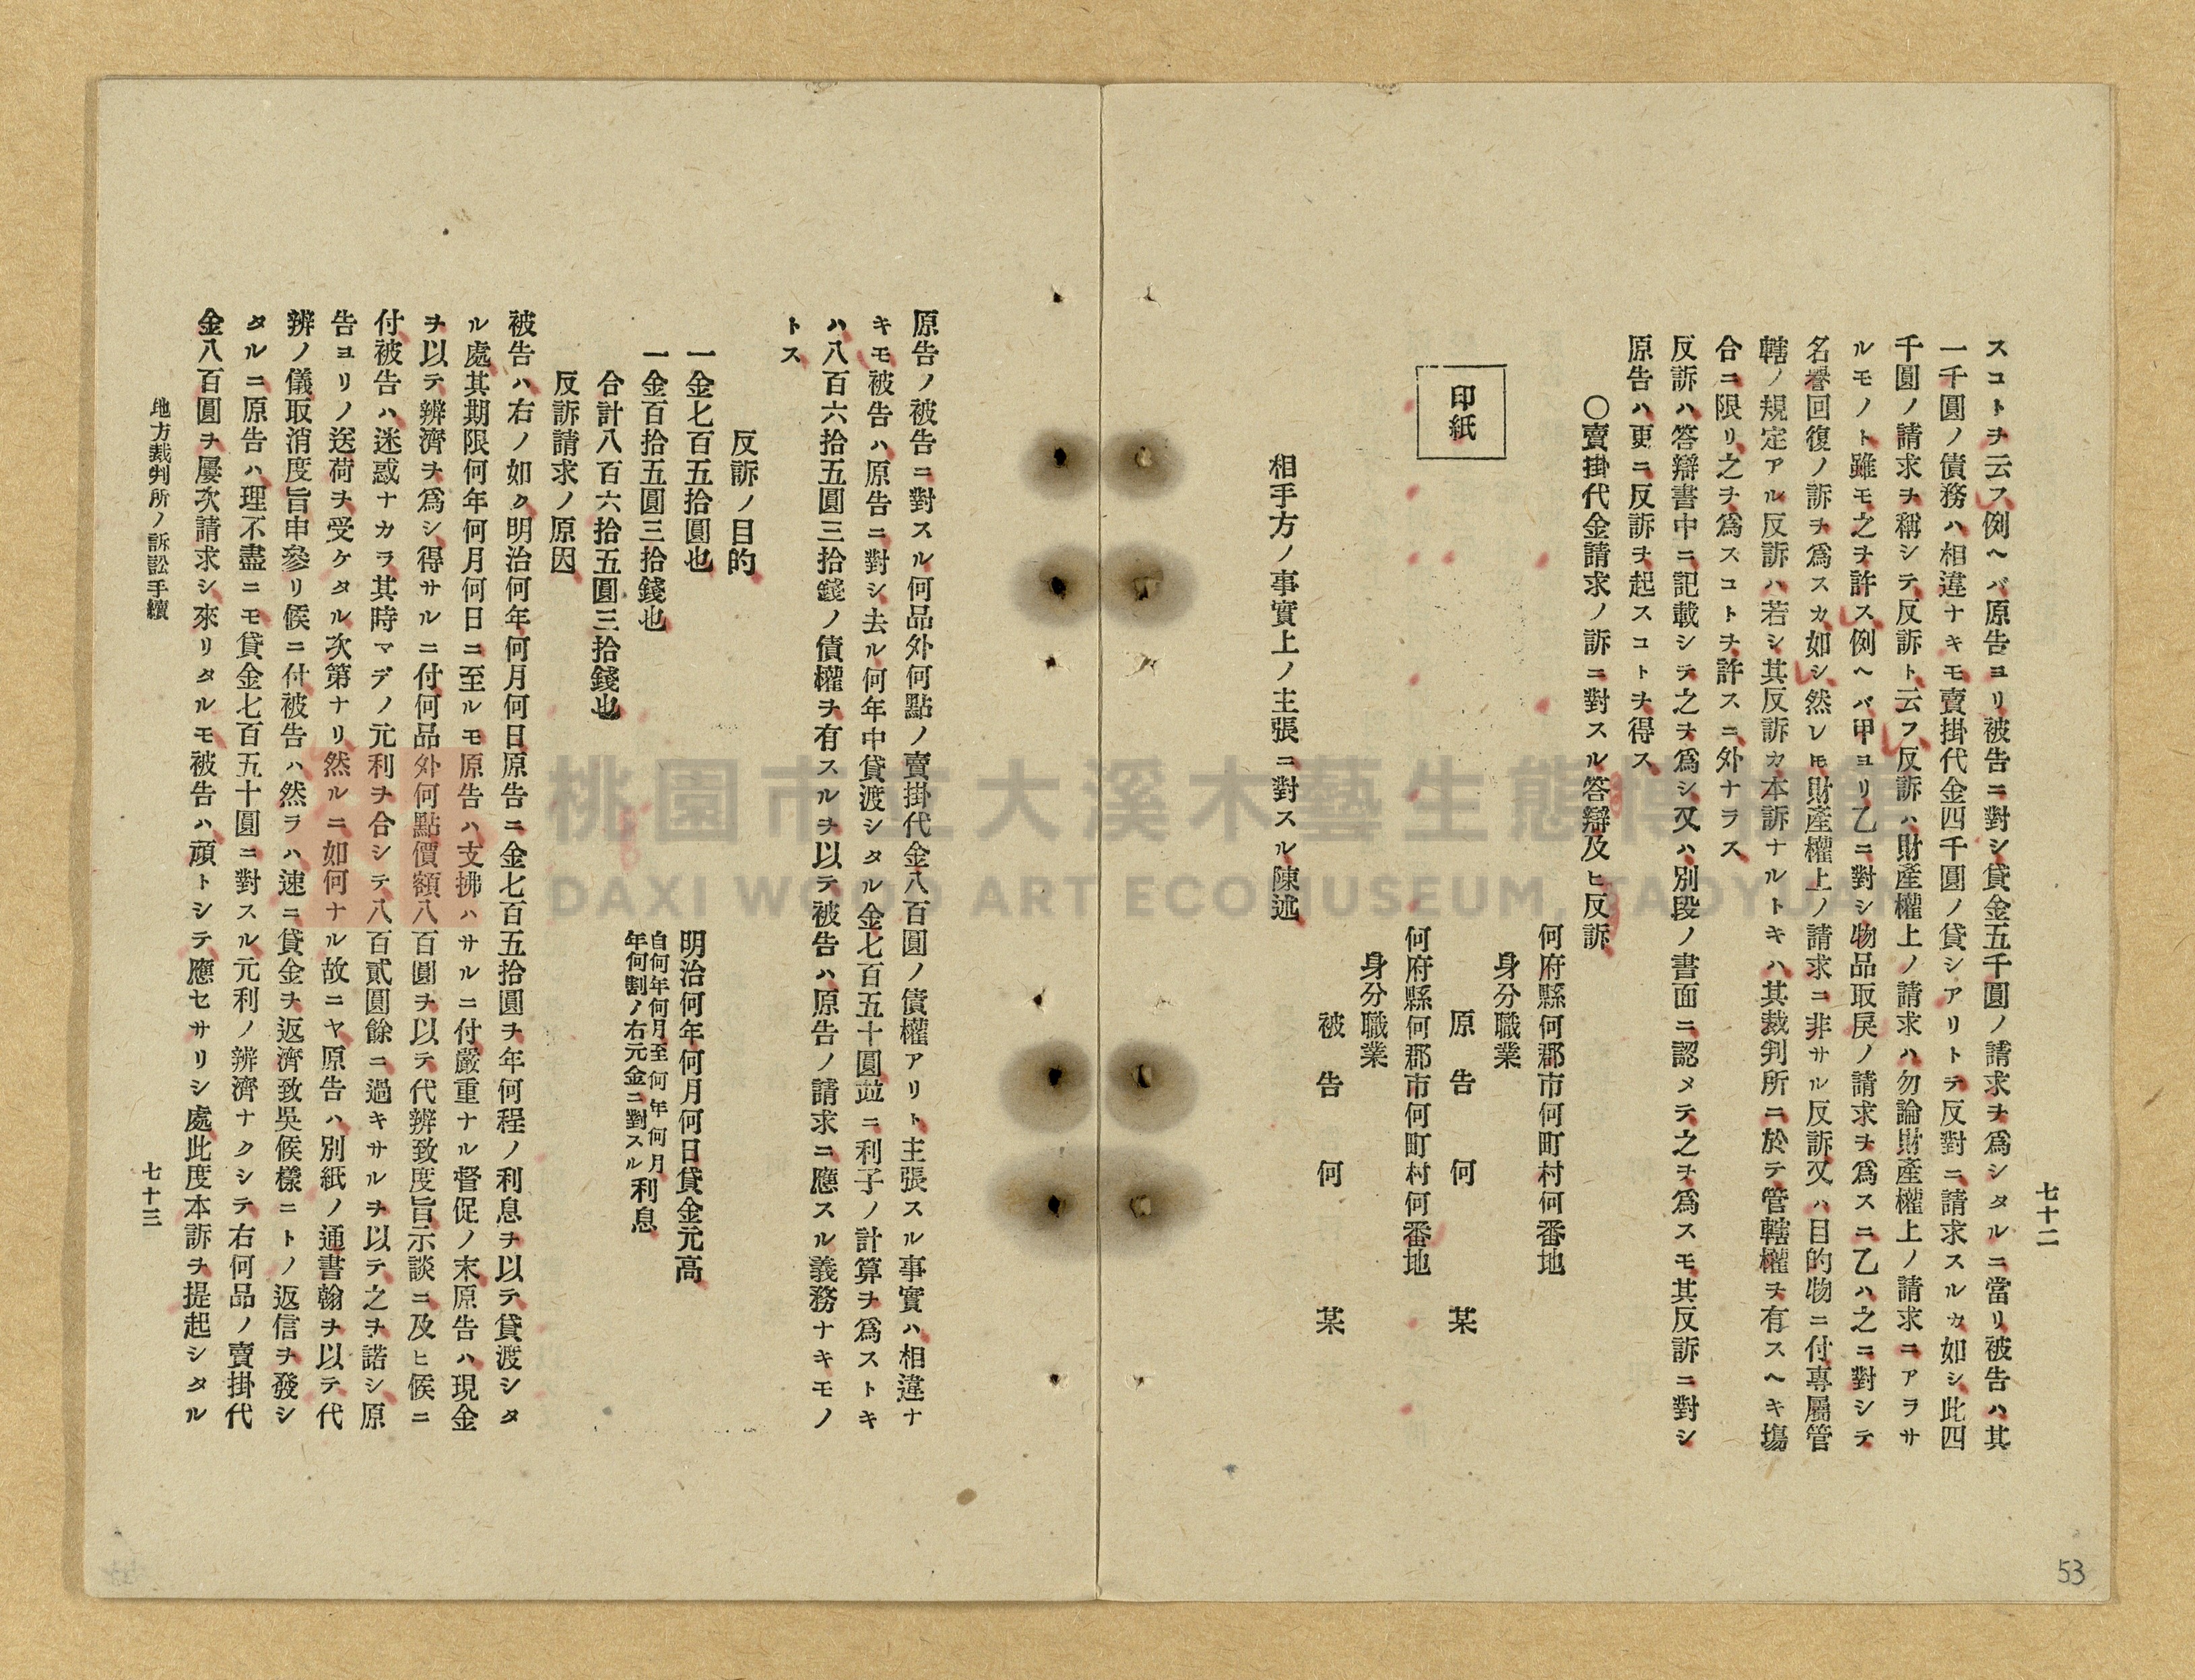 七十二
スコトヲ云フ例ヘバ原告ヨリ被告ニ對シ貸金五千圓ノ請求ヲ爲シタルニ當リ被告ハ其
一千圓ノ債務ハ相違ナキモ賣掛代金四千圓ノ貸シアリトテ反對ニ請求スルカ如シ此四
千圓ノ請求ヲ稱シテ反訴ト云フ反訴ハ財產權上ノ請求ハ勿論財產權上ノ請求ニアラサ
ルモノト雖モ之ヲ許ス例ヘバ甲ヨリ乙ニ對シ物品取戾ノ請求ヲ爲スニ乙ハ之ニ對シテ
名譽回復ノ訴ヲ爲スカ如シ然レ𪜈財產權上ノ請求ニ非サル反訴又ハ目的物ニ付專屬管
轄ノ規定アル反訴ハ若シ其反訴カ本訴ナルトキハ其裁判所ニ於テ管轄權ヲ有スヘキ塲
合ニ限リ之ヲ爲スコトヲ許スニ外ナラス
反訴ハ答辯書中ニ記載シテ之ヲ爲シ又ハ別段ノ書面ニ認メテ之ヲ爲スモ其反訴ニ對シ
原告ハ更ニ反訴ヲ起スコトヲ得ス
〇賣掛代金請求ノ訴ニ對スル答辯及ヒ反訴
何府縣何郡市何町村何番地
身分職業
原告 何 某
印紙
何府縣何郡市何町村何番地
身分職業
被告 何 某
相手方ノ事實上ノ主張ニ對スル陳述
原告ノ被告ニ對スル何品外何點ノ賣掛代金八百圓ノ債權アリト主張スル事實ハ相違ナ
キモ被告ハ原告ニ對シ去ル何年中貸渡シタル金七百五十圓竝ニ利子ノ計算ヲ爲ストキ
ハ八百六拾五圓三拾錢ノ債權ヲ有スルヲ以テ被告ハ原告ノ請求ニ應スル義務ナキモノ
トス
反訴ノ目的
一金七百五拾圓也 明治何年何月何日貸金元高
一金百拾五圓三拾錢也 自何年何月至何年何月年何割ノ右元金ニ對スル利息
合計八百六拾五圓三拾錢也
反訴請求ノ原因
被告ハ右ノ如ク明治何年何月何日原告ニ金七百五拾圓ヲ年何程ノ利息ヲ以テ貸渡シタ
ル處其期限何年何月何日ニ至ルモ原告ハ支拂ハサルニ付嚴重ナル督促ノ末原告ハ現金
ヲ以テ辨濟ヲ爲シ得サルニ付何品外何點價額八百圓ヲ以テ代辨致度旨示談ニ及ヒ候ニ
付被告ハ迷惑ナカラ其時マデノ元利ヲ合シテ八百貳圓餘ニ過キサルヲ以テ之ヲ諾シ原
告ヨリノ送荷ヲ受ケタル次第ナリ然ルニ如何ナル故ニヤ原告ハ別紙ノ通書翰ヲ以テ代
辨ノ儀取消度旨申參リ候ニ付被告ハ然ラハ速ニ貸金ヲ返濟致吳候樣ニトノ返信ヲ發シ
タルニ原告ハ理不盡ニモ貸金七百五十圓ニ對スル元利ノ辨濟ナクシテ右何品ノ賣掛代
金八百圓ヲ屢次請求シ來リタルモ被告ハ頑トシテ應セサリシ處此度本訴ヲ提起シタル
地方裁判所ノ訴訟手續
七十三
53
桃園市立大溪木藝生態博物館
DAXI WOOD ART ECOMUSEUM, TAOYUAN